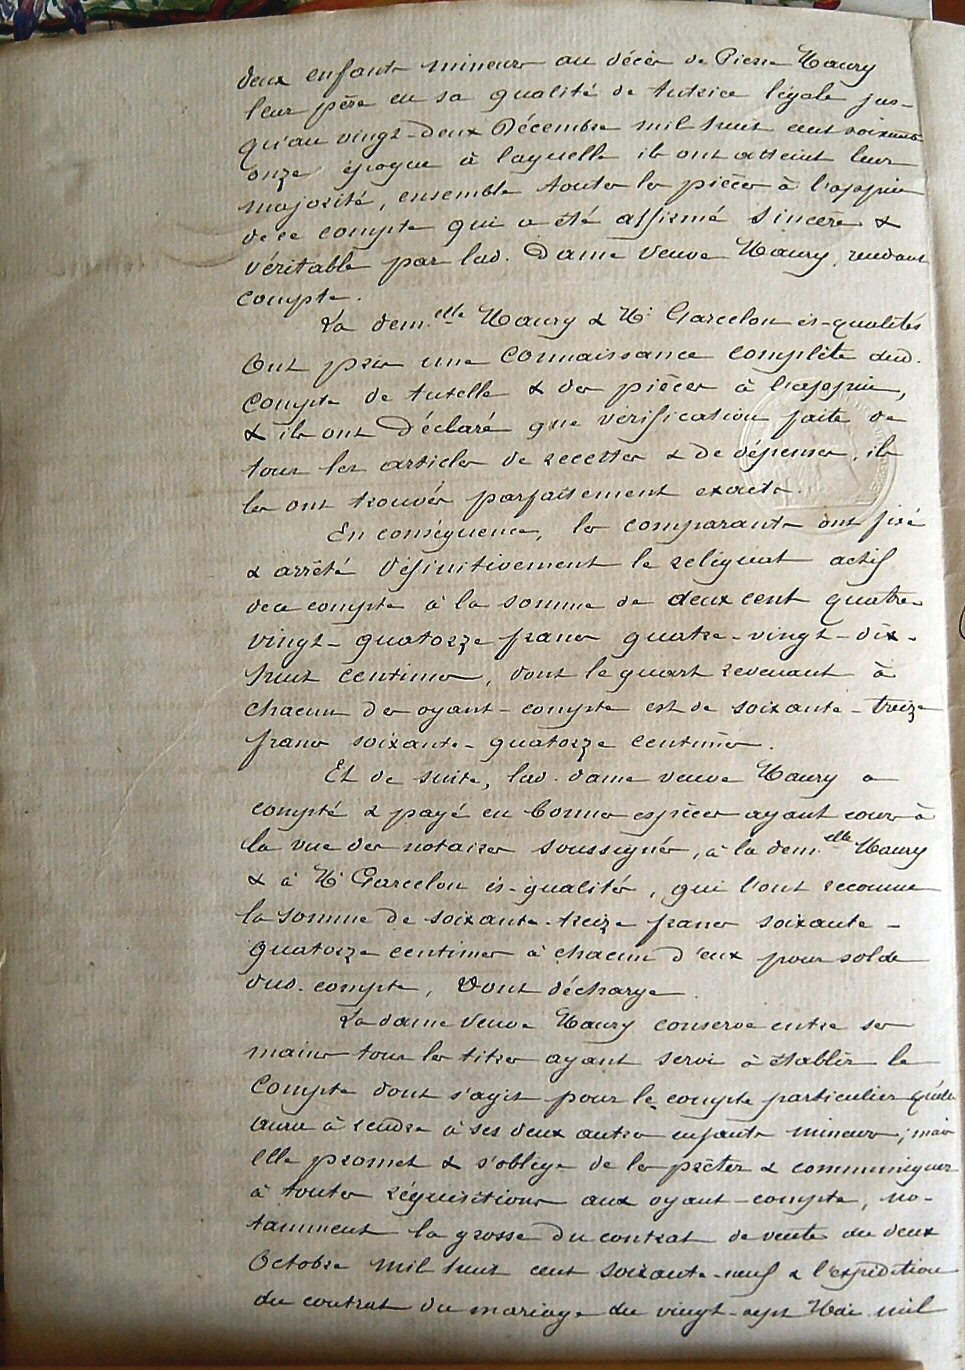 deux enfants mineurs au décès de Pierre Maury
leur père en sa qualité de tutrice légale jus-
qu'au vingt-deux Décembre mil huit cent soixante
onze époque à laquelle ils ont atteint leur
majorité, ensemble toutes les pièces à l'appui
de ce compte qui a été affirmé sincère &
véritable par lad. Dame Veuve Maury, rendant
compte.
La dem.elle Maury & Mr Garcelon ès-qualités
Ont pris une connaissance complète dud.
compte de tutelle & des pièces à l'appui,
& ils ont déclaré que vérification faite de
tous les articles de recettes & de dépenses, ils
les ont trouvés parfaitement exacts.
En conséquence, les comparants ont fixé
& arrêté définitivement le reliquat actif
de ce compte à la somme de deux cent quatre
vingt-quatorze francs quatre-vingt-dix-
huit centimes, dont le quart revenant à
chacun des oyant-compte est de soixante-treize
francs soixante-quatorze centimes.
Et de suite, lad. dame veuve Maury a
compté & payé en bonnes espèces ayant cours à
la vue des notaires soussignés, à la dem.elle Maury
& à Mr Garcelon ès-qualités, qui l'ont reconnu
la somme de soixante-treize francs soixante-
quatorze centimes à chacun d'eux pour solde
dud. compte, Dont décharge.
La dame Veuve Maury conserve entre ses
mains tous les titres ayant servi à établir le
compte dont s'agit pour le compte particulier qu'elle
aura à rendre à ses deux autres enfants mineurs; mais
elle promet & s'oblige de les prêter & communiquer
à toutes réquisitions aux oyant-compte, no-
tamment la grosse du contrat de vente du deux
Octobre mil huit cent soixante-neuf & l'expédition
du contrat du mariage du vingt-sept Mai mil